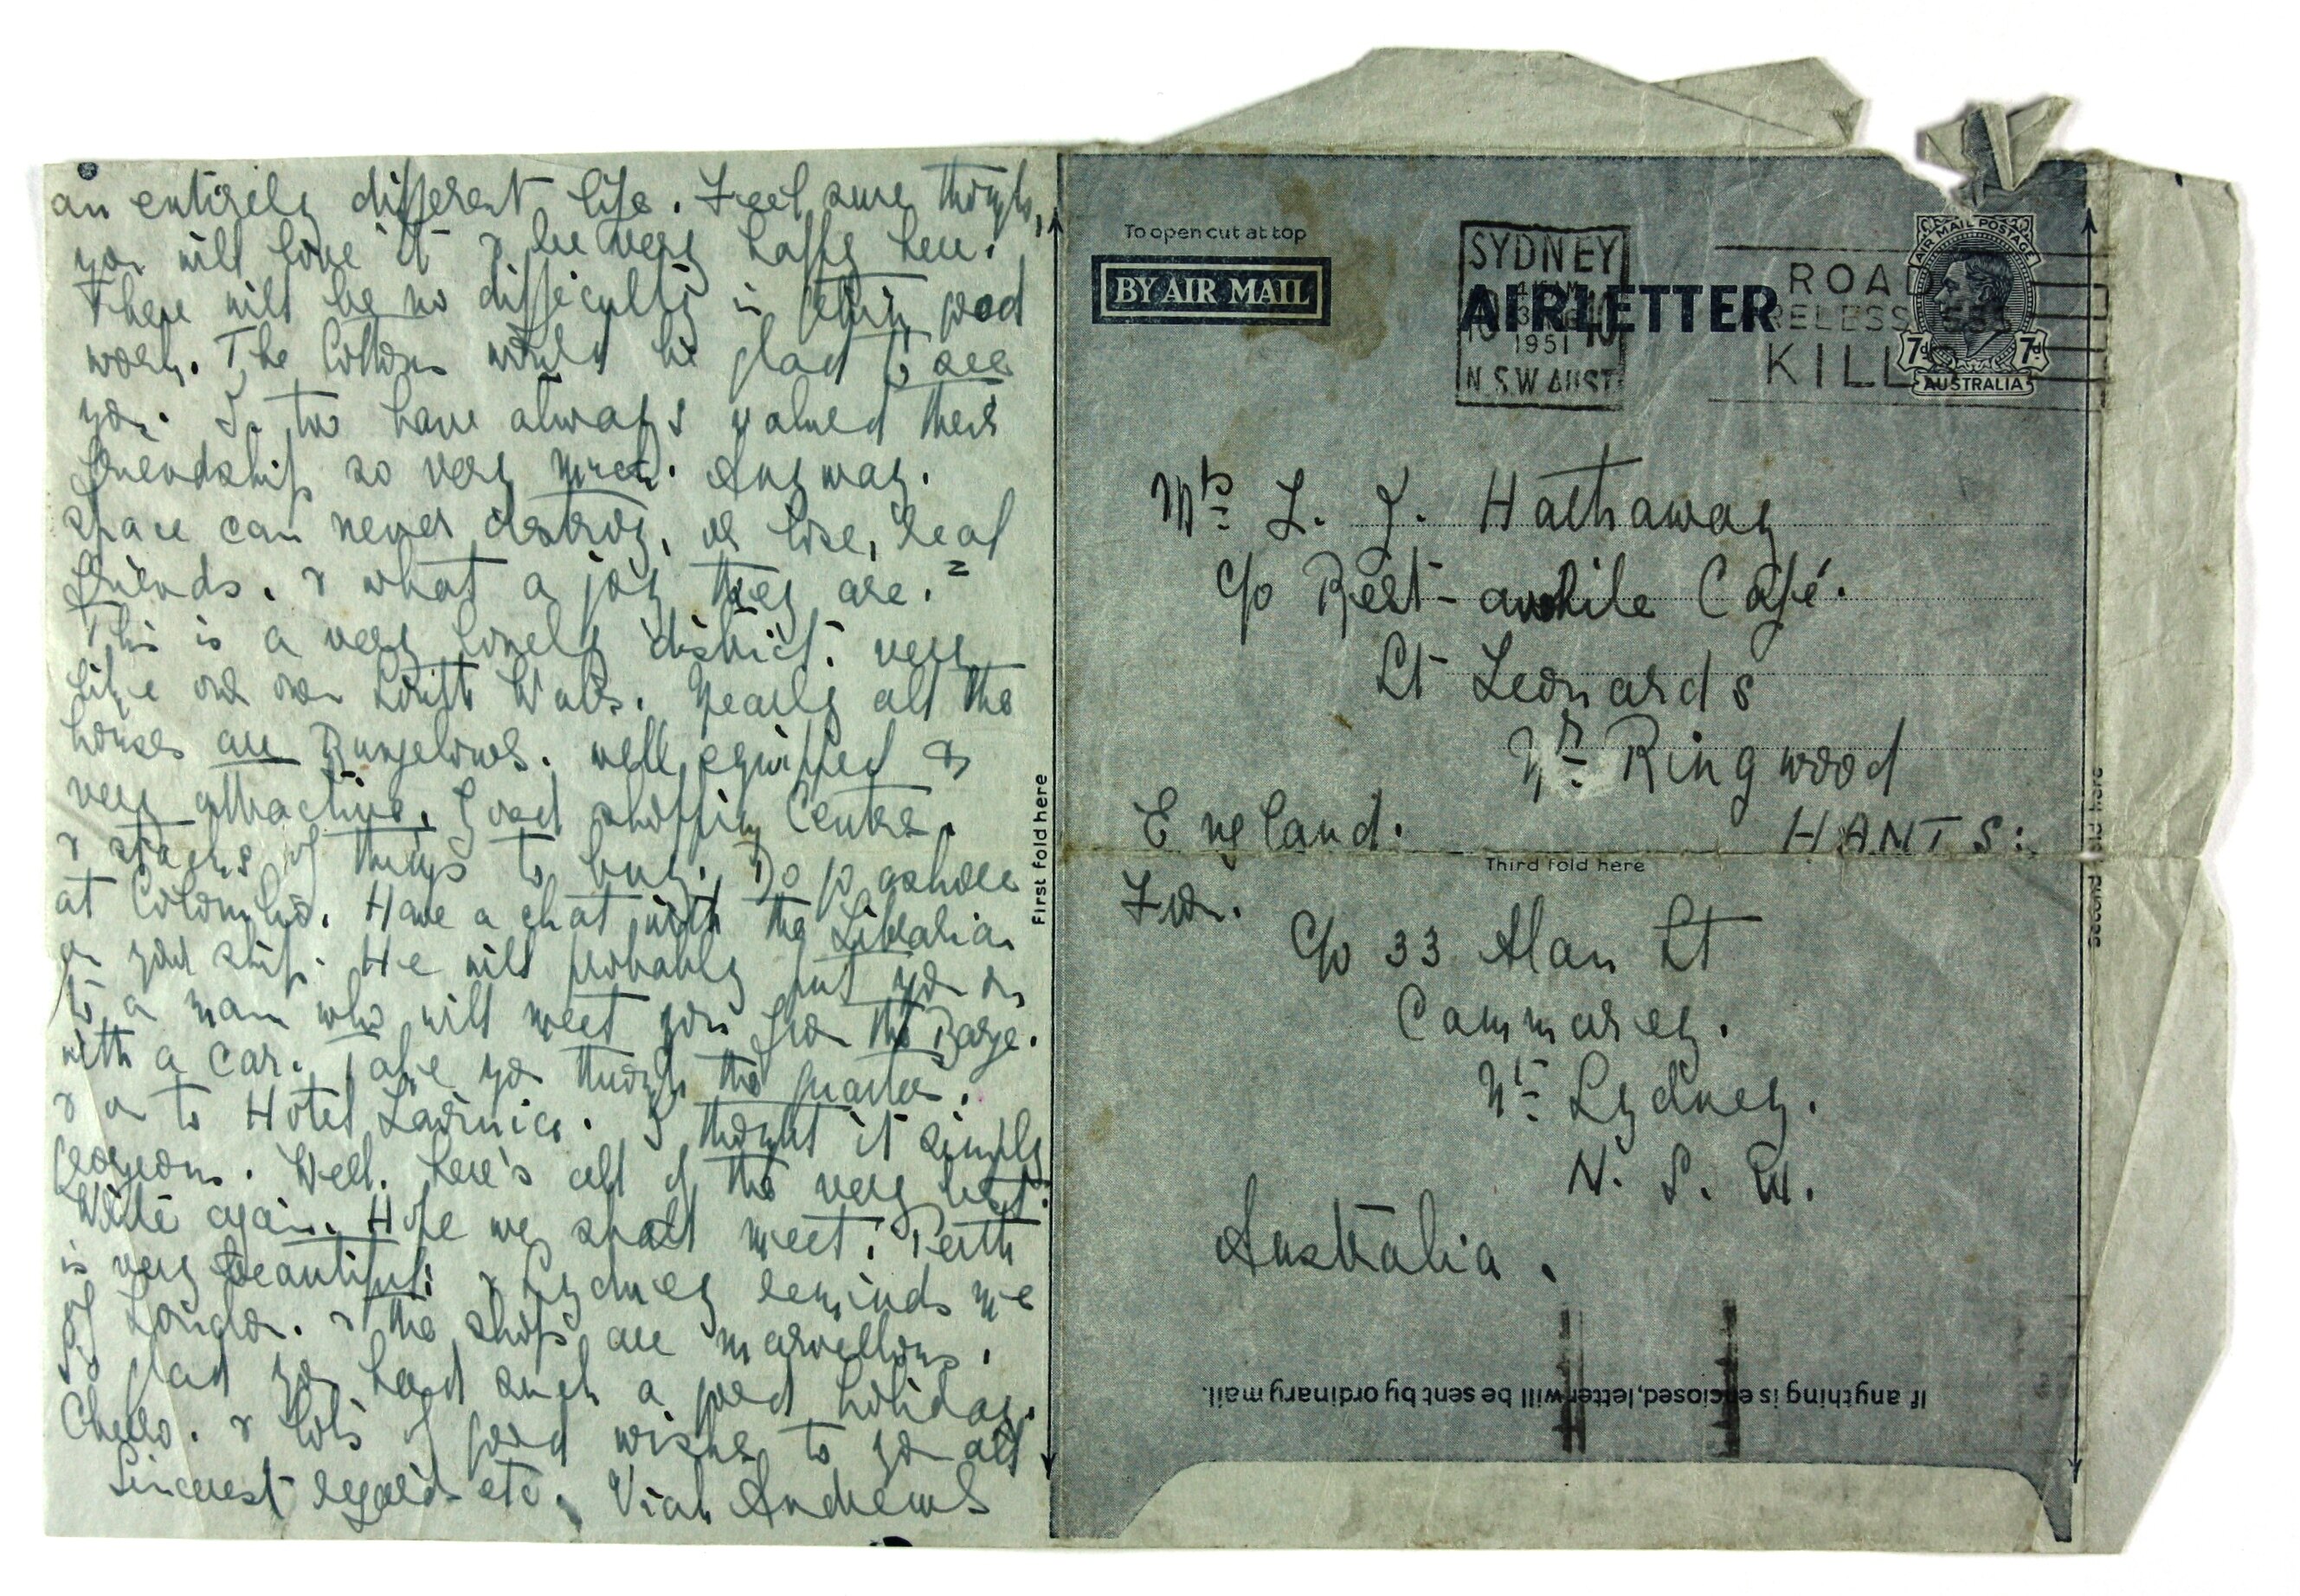 an entirely different life. Feel sure though,
you will love it & be very happy here.
There will be no difficulty in getting good
work. The Cottons would be glad to see
you. I too have always valued their
friendship so very much. Anyway.
Space can never destroy, or lose, real
friends. & what a joy they are.
This is a very lovely district. very
like our own South Wales. Nearly all the
houses are Bungelows. well equipped &
very attractive. Good shopping Centre.
& of things to buy. Do go ashore
at Colombo. Have a chat with the Librarian
on your ship. He will probably put you on
to a man who will meet you from the Barge.
with a car. Take you through the quarter.
& on to Hotel I thought it simply
Georgeous. Well. here's all of the very best.
Write again. Hope we shall meet. Perth
is very beautiful: & Sydney reminds me
of London. & the shops are marvellous.
So glad you had such a good holiday.
Cheero. & lots of good wishes to you all
Sincerest regards etc. Andrews
First fold here
To open cut at top
BY AIR MAIL
AIR LETTER
SYDNEY
1951
N.S.W AUST
ROA
RELESS
KILL
AIR MAIL POSTAGE
7d 7d
AUSTRALIA
Mrs L. J. Hathaway
c/o Rest-awhile Café.
St Leonards
Nr Ringwood
England. HANTS:
Third fold here
From.
C/o 33 Alan St
Cammarey.
Nth Sydney.
N. S. W.
Australia.
If anything is enclosed, letter will be sent by ordinary mail.
Second fold here